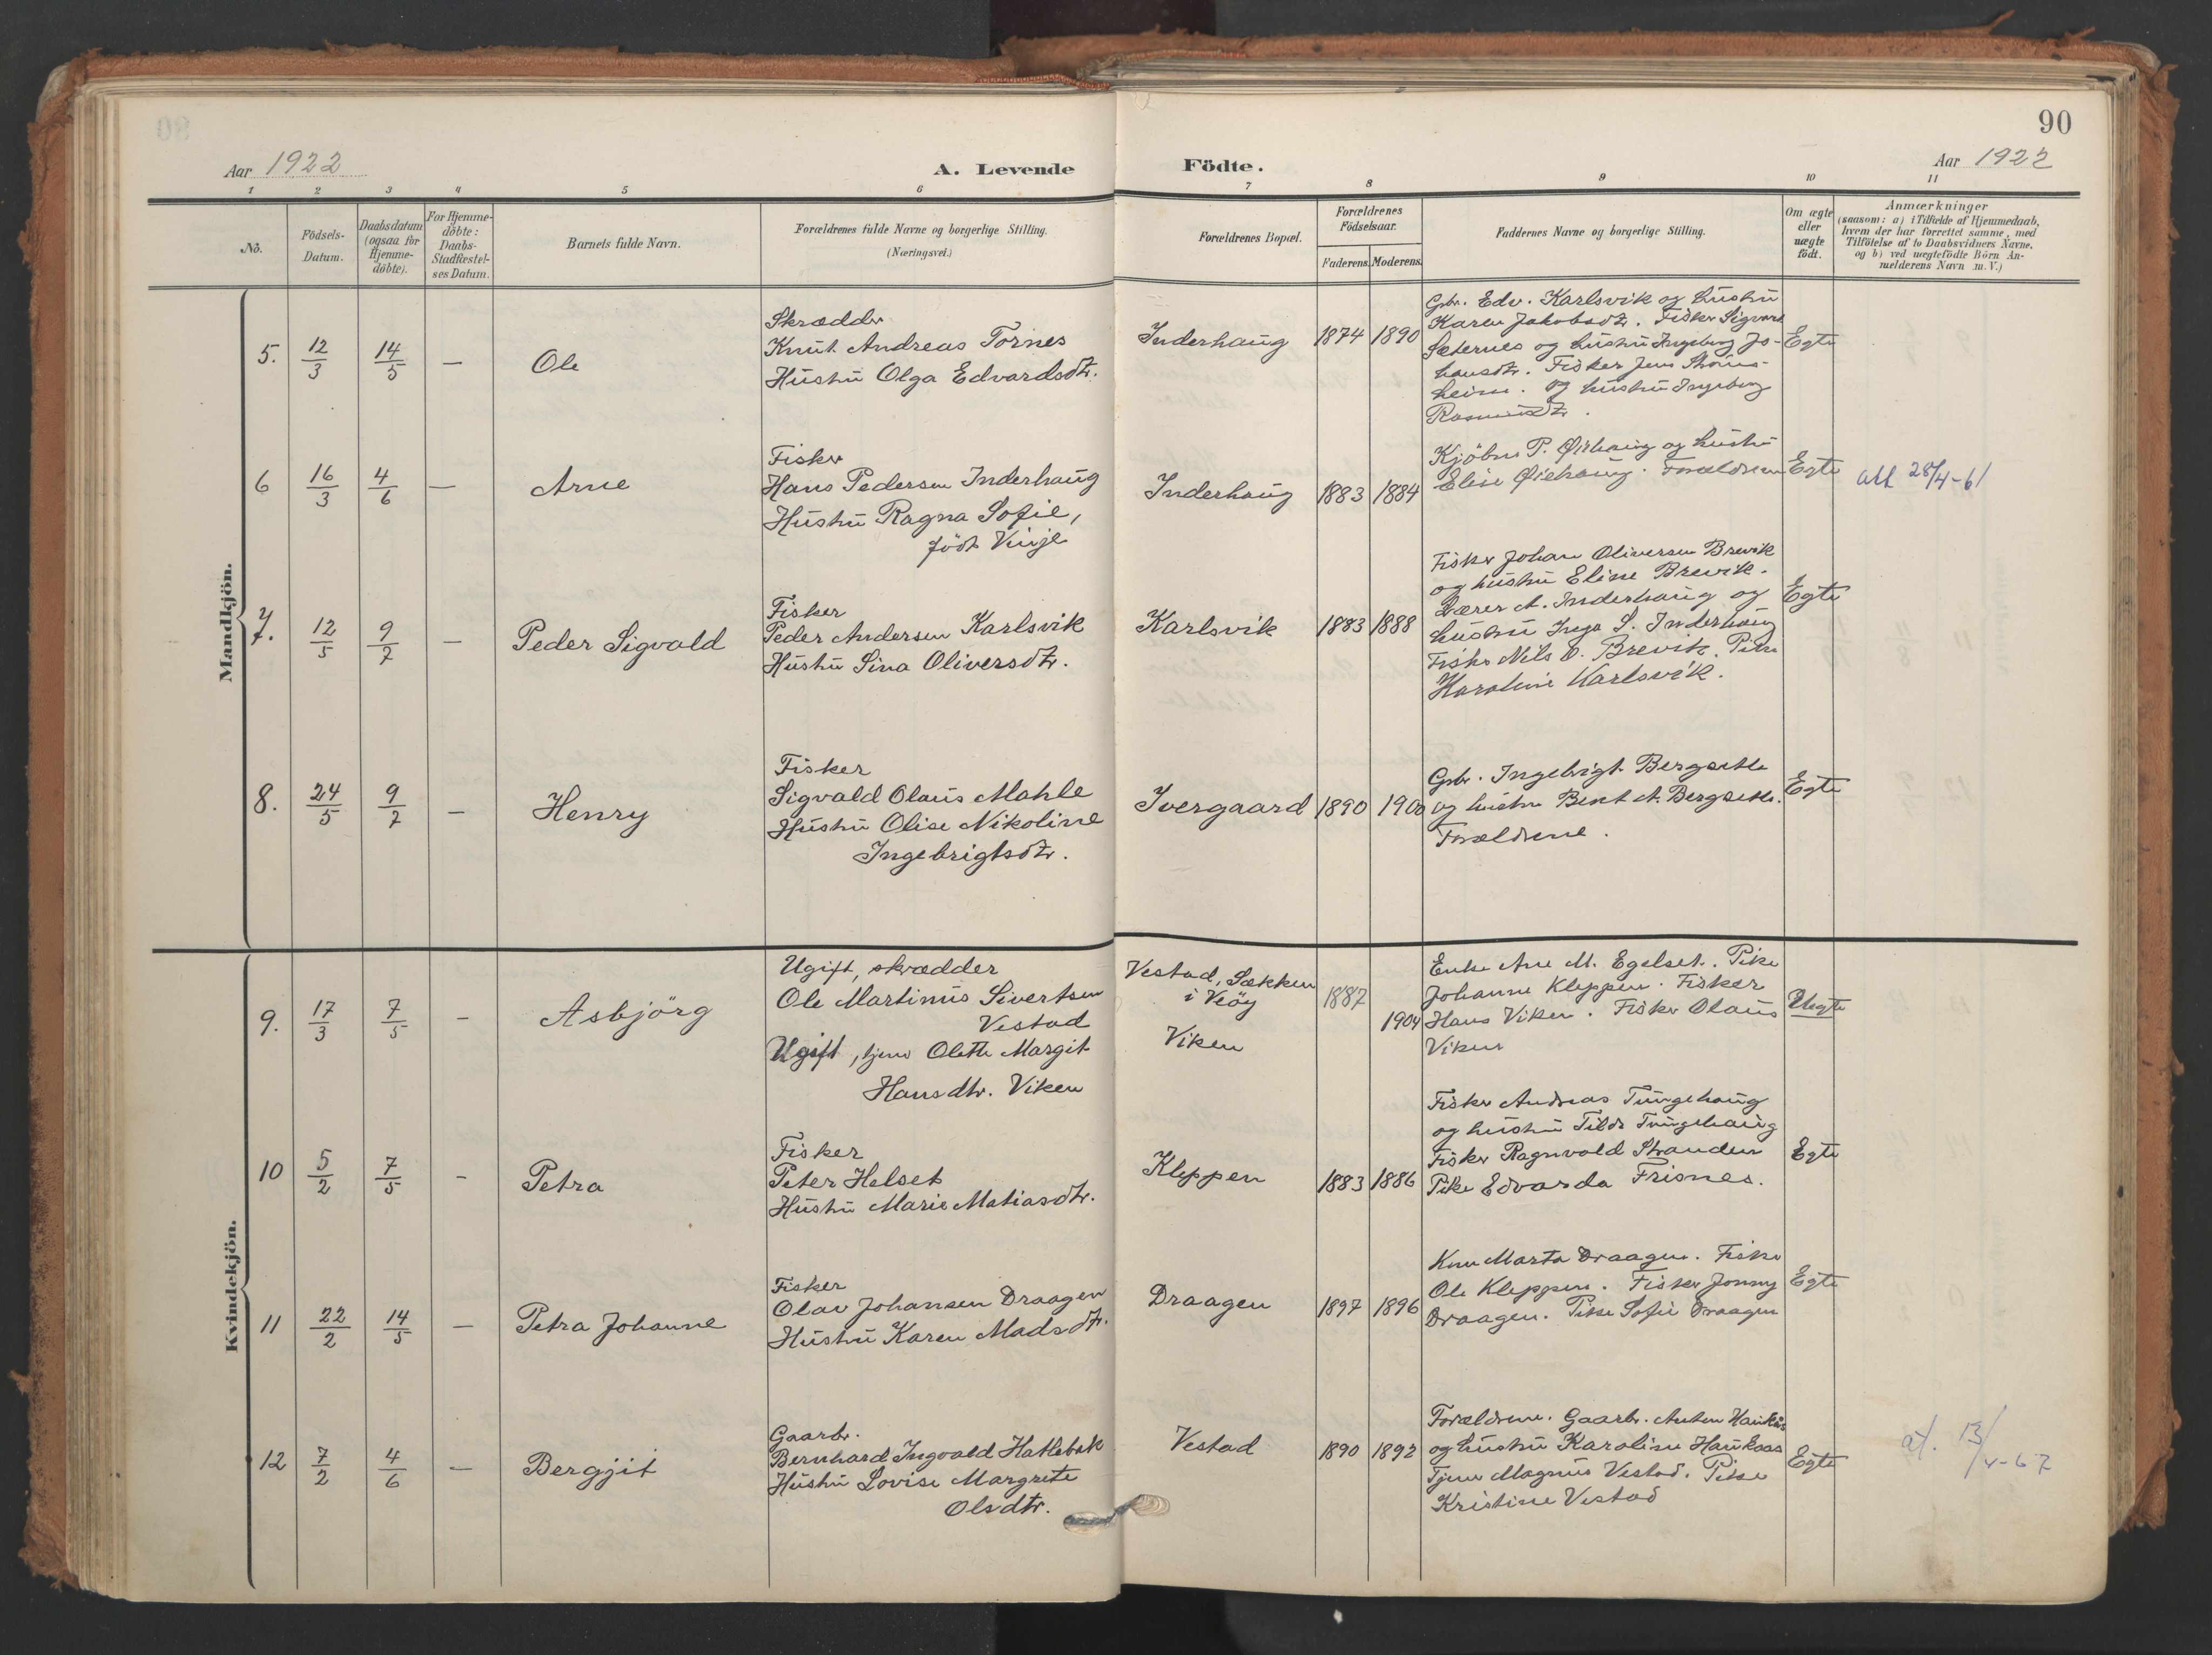 90
Aar 1922
A. Levende Födte.
Aar 1922
1 2 3 4 5 6 7 8 9 10 11
No.
Födsels-
Datum.
Daabsdatum
(ogsaa for
Hjemme-
döbte).
For Hjemme-
döbte:
Daabs-
Stadfæstel-
ses Datum.
Barnets fulde Navn.
Forældrenes fulde Navne og borgerlige Stilling.
(Næringsvei.)
Forældrenes Bopæl.
Forældrenes
Födselsaar.
Faderens. Moderens.
Faddernes Navne og borgerlige Stilling.
Om ægte
eller
uægte
födt.
Anmærkninger
(saasom: a) i Tilfælde af Hjemmedaab,
hvem der har forrettet samme, med
Tilföielse af to Daabsvidners Navne,
og b) ved uægtefödte Börn An-
melderens Navn m. V.)
Mandkjön.
5. 12/3 14/5 — Ole
Skrædder
Knut Andreas Tornes
Hustru Olga Edvardsdtr.
Inderhaug 1874 1890
Gbr. Edv. Karlsvik og hustru
Karen Jakobsdtr. Fisker Sigvart
Sæternes og hustru Ingeborg Jo-
hansdtr. Fisker Jens
heim. og hustru Ingeborg
Rasmusdtr.
Egte
6 16/3 4/6 — Arne
Fisker
Hans Pedersen Inderhaug
Hustru Ragna Sofie,
födt Vinje
Inderhaug 1883 1884
Kjöbm P. Øiehaug og hustru
Elise Øiehaug. Forældrene
Egte
att 28/4-61
7. 12/5 9/7 — Peder Sigvald
Fisker
Peder Andersen Karlsvik
Hustru Sina Oliversdtr.
Karlsvik 1883 1888
Fisker Johan Oliversen Brevik
og hustru Eline Brevik.
Lærer A. Inderhaug og
hustru Inga S. Inderhaug
Fisker Nils O. Brevik. Pike
Karoline Karlsvik.
Egte
8. 24/5 9/7 — Henry
Fisker
Sigvald Olaus Mahle
Hustru Olise Nikoline
Ingebrigtsdtr.
Ivergaard 1890 1900
Gbr. Ingebrigt Bergsetle
og hustru Berit A. Bergsetle.
Forældrene.
Egte
Kvindekjön.
9. 17/3 7/5 - Asbjörg
Ugift, skrædder
Ole Martinus Sivertsen
Vestad
Ugift, tjener Olette Margit
Hansdtr. Viken
Vestad, Sækken
i Veöy
Viken
1887
1904
Enke Ane M. Egelset. Pike
Johanne Kleppen. Fisker
Hans Viken. Fisker Olaus
Viken
Uegte
10 5/2 7/5 - Petra
Fisker
Peter Helset
Hustru Marie Matiasdtr.
Kleppen 1883 1886
Fisker Andreas Tungehaug
og hustru Tilda Tungehaug
Fisker Ragnvald Stranden
Pike Edvarda Frisnes.
Egte
11 22/2 14/5 — Petra Johanne
Fisker
Olav Johansen Draagen
Hustru Karen Madsdtr.
Draagen 1897 1896
Kone Marta Draagen. Fisker
Ole Kleppen. Fisker Jonny
Draagen. Pike Sofie Draagen
Egte
12 7/2 4/6 — Bergjit
Gaarbr.
Bernhard Ingvald Hatlebak
Hustru Lovise Margrete
Olsdtr.
Vestad 1890 1892
Forældrene. Gaarbr. Anton Haukaas
og hustru Karoline Haukaas
Tjener Magnus Vestad. Pike
Kristine Vestad
Egte
at. 13/4-67